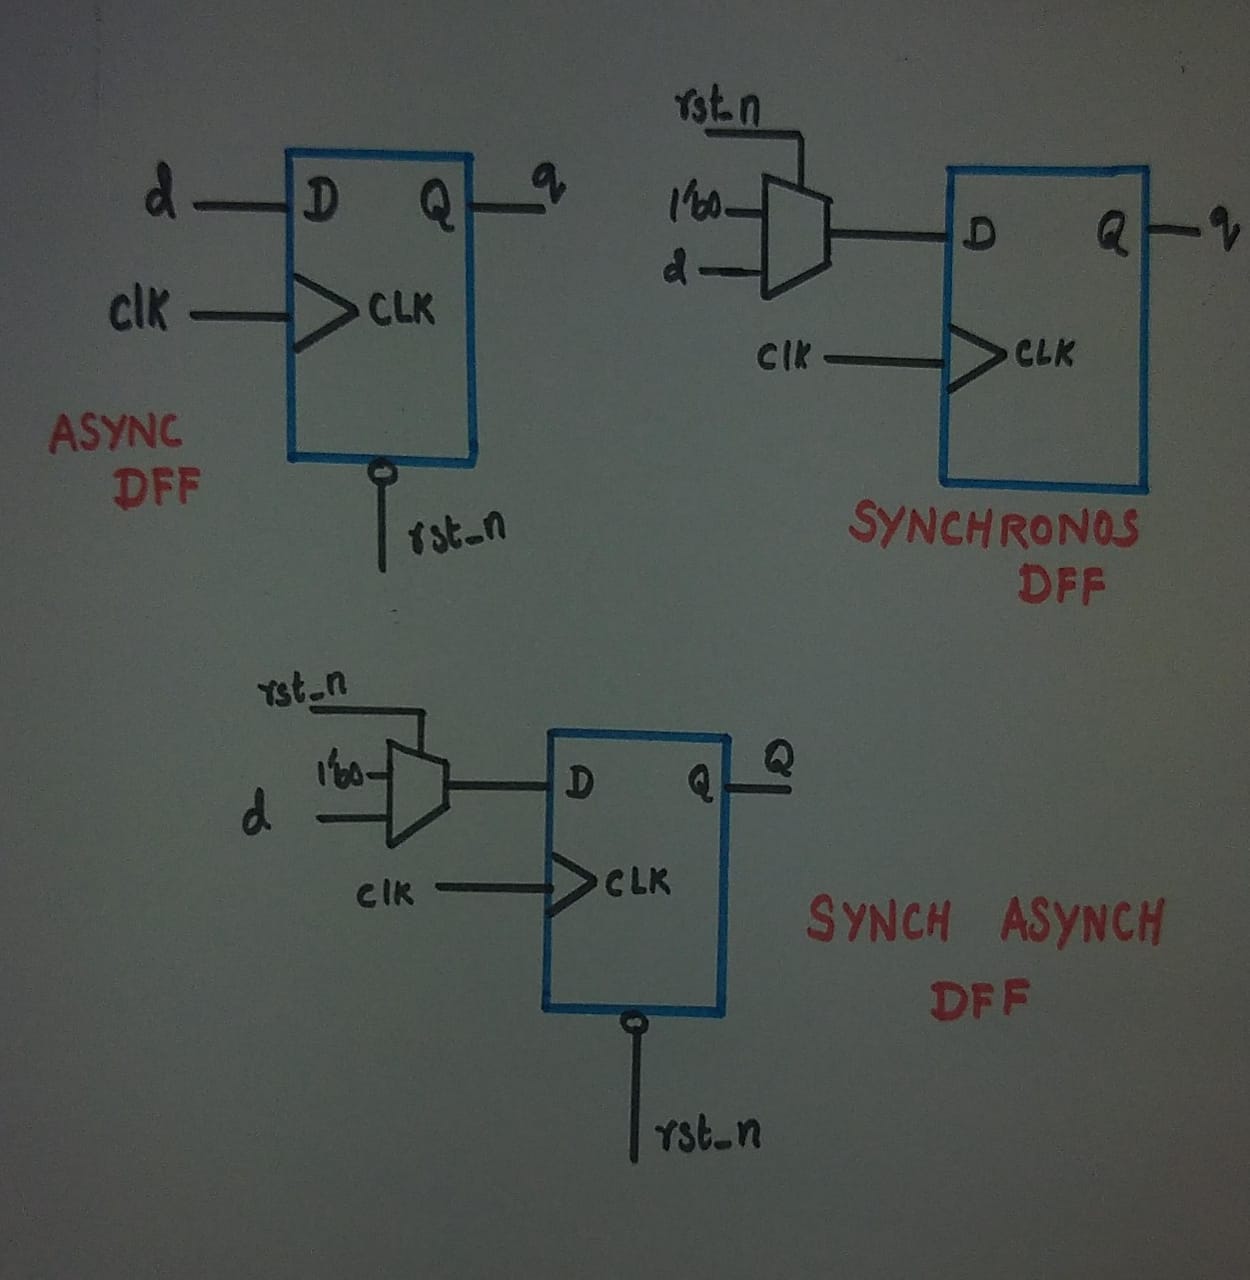 d
D
Q
q
clk
CLK
ASYNC
DFF
rst_n
rst_n
1'b0
d
D
Q
q
clk
CLK
SYNCHRONOS
DFF
rst_n
1'b0
d
D
Q
Q
clk
CLK
SYNCH ASYNCH
DFF
rst_n